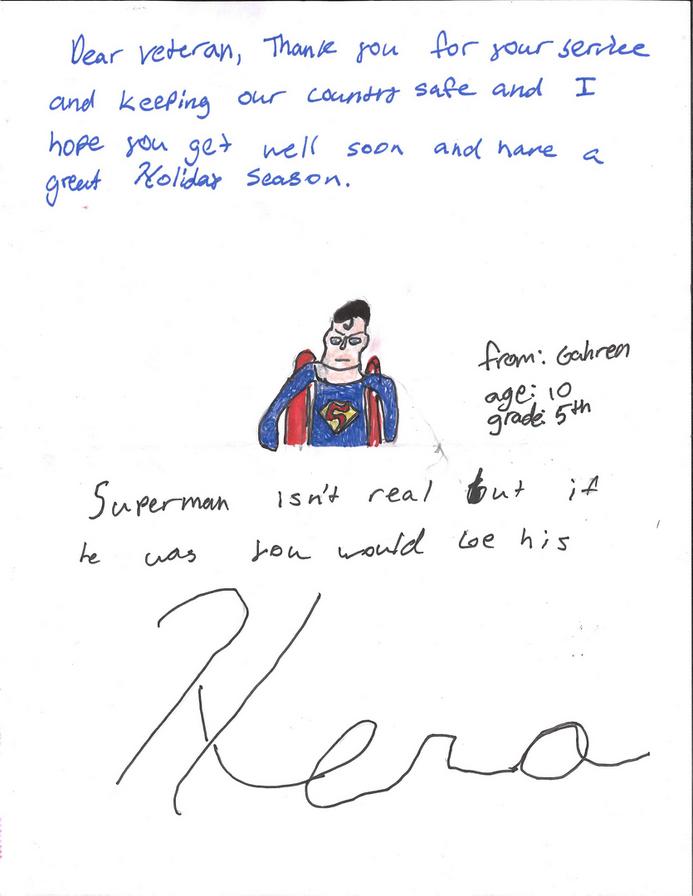 Dear veteran, Thank you for your service
and keeping our country safe and I
hope you get well soon and have a
great Holiday Season.
S
from: Gahren
age: 10
grade: 5th
Superman isn't real but if
he was you would be his
Hero